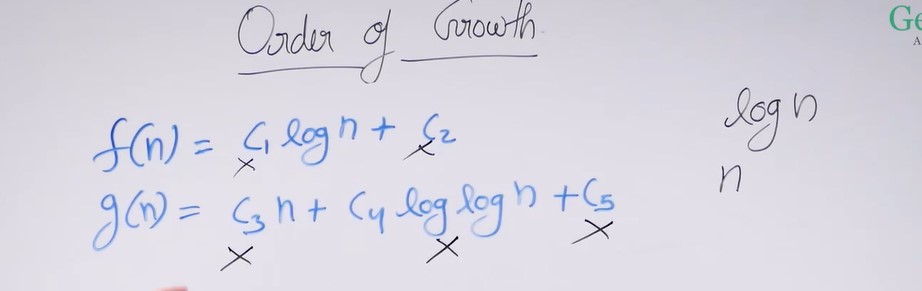 Order of Growth
f(n) = C₁ log n + C₂
g(n) = C₃ n + C₄ log log n + C₅
log n
n